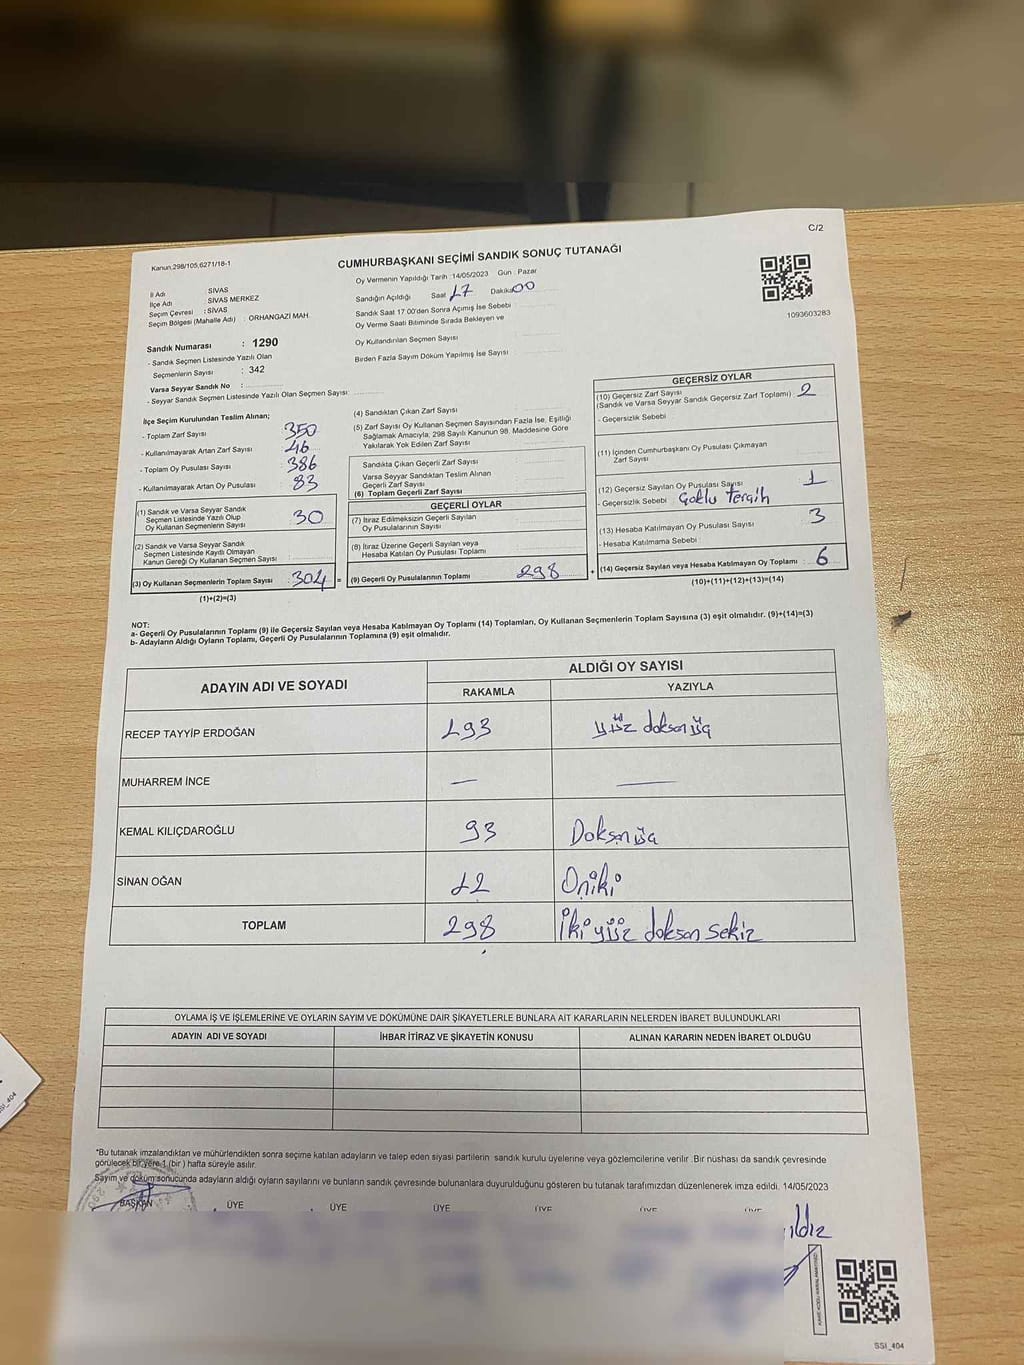 C/2
Kanun.298/105,6271/18-1
CUMHURBAŞKANI SEÇİMİ SANDIK SONUÇ TUTANAĞI
Oy Vermenin Yapıldığı Tarih :14/05/2023 Gün : Pazar
İl Adı : SİVAS
İlçe Adı : SİVAS MERKEZ
Seçim Çevresi : SİVAS
Seçim Bölgesi (Mahalle Adı) : ORHANGAZİ MAH.
Sandığın Açıldığı Saat 17 Dakika 00
Sandık Saat 17:00'den Sonra Açımış İse Sebebi
Oy Verme Saati Bitiminde Sırada Bekleyen ve
Oy Kullandırılan Seçmen Sayısı
Birden Fazla Sayım Döküm Yapılmış İse Sayısı
1093603283
Sandık Numarası : 1290
- Sandık Seçmen Listesinde Yazılı Olan
Seçmenlerin Sayısı : 342
Varsa Seyyar Sandık No :
- Seyyar Sandık Seçmen Listesinde Yazılı Olan Seçmen Sayısı:
İlçe Seçim Kurulundan Teslim Alınan;
- Toplam Zarf Sayısı 350
- Kullanılmayarak Artan Zarf Sayısı 46
- Toplam Oy Pusulası Sayısı 386
- Kullanılmayarak Artan Oy Pusulası 83
(1) Sandık ve Varsa Seyyar Sandık
Seçmen Listesinde Yazılı Olup
Oy Kullanan Seçmenlerin Sayısı 30
(2) Sandık ve Varsa Seyyar Sandık
Seçmen Listesinde Kayıtlı Olmayan
Kanun Gereği Oy Kullanan Seçmen Sayısı
(3) Oy Kullanan Seçmenlerin Toplam Sayısı : 304 =
(1)+(2)=(3)
(4) Sandıktan Çıkan Zarf Sayısı
(5) Zarf Sayısı Oy Kullanan Seçmen Sayısından Fazla İse, Eşitliği
Sağlamak Amacıyla, 298 Sayılı Kanunun 98. Maddesine Göre
Yakılarak Yok Edilen Zarf Sayısı
Sandıkta Çıkan Geçerli Zarf Sayısı
Varsa Seyyar Sandıktan Teslim Alınan
Geçerli Zarf Sayısı
(6) Toplam Geçerli Zarf Sayısı
GEÇERLİ OYLAR
(7) İtiraz Edilmeksizin Geçerli Sayılan
Oy Pusulalarının Sayısı
(8) İtiraz Üzerine Geçerli Sayılan veya
Hesaba Katılan Oy Pusulası Toplamı
(9) Geçerli Oy Pusulalarının Toplamı 298 +
GEÇERSİZ OYLAR
(10) Geçersiz Zarf Sayısı
(Sandık ve Varsa Seyyar Sandık Geçersiz Zarf Toplamı) : 2
- Geçersizlik Sebebi
(11) İçinden Cumhurbaşkanı Oy Pusulası Çıkmayan
Zarf Sayısı
(12) Geçersiz Sayılan Oy Pusulası Sayısı 1
- Geçersizlik Sebebi Çoklu Tercih
(13) Hesaba Katılmayan Oy Pusulası Sayısı 3
- Hesaba Katılmama Sebebi
(14) Geçersiz Sayılan veya Hesaba Katılmayan Oy Toplamı : 6
(10)+(11)+(12)+(13)=(14)
NOT:
a- Geçerli Oy Pusulalarının Toplamı (9) ile Geçersiz Sayılan veya Hesaba Katılmayan Oy Toplamı (14) Toplamları, Oy Kullanan Seçmenlerin Toplam Sayısına (3) eşit olmalıdır. (9)+(14)=(3)
b- Adayların Aldığı Oyların Toplamı, Geçerli Oy Pusulalarının Toplamına (9) eşit olmalıdır.
ADAYIN ADI VE SOYADI
ALDIĞI OY SAYISI
RAKAMLA YAZIYLA
RECEP TAYYİP ERDOĞAN 193 yüz doksan üç
MUHARREM İNCE — —
KEMAL KILIÇDAROĞLU 93 Doksan üç
SİNAN OĞAN 12 Oniki
TOPLAM 298 İki yüz doksan sekiz
OYLAMA İŞ VE İŞLEMLERİNE VE OYLARIN SAYIM VE DÖKÜMÜNE DAİR ŞİKAYETLERLE BUNLARA AİT KARARLARIN NELERDEN İBARET BULUNDUKLARI
ADAYIN ADI VE SOYADI İHBAR İTİRAZ VE ŞİKAYETİN KONUSU ALINAN KARARIN NEDEN İBARET OLDUĞU
*Bu tutanak imzalandıktan ve mühürlendikten sonra seçime katılan adayların ve talep eden siyasi partilerin sandık kurulu üyelerine veya gözlemcilerine verilir .Bir nüshası da sandık çevresinde
görülecek bir yere 1 (bir ) hafta süreyle asılır.
Sayım ve döküm sonucunda adayların aldığı oyların sayılarını ve bunların sandık çevresinde bulunanlara duyurulduğunu gösteren bu tutanak tarafımızdan düzenlenerek imza edildi. 14/05/2023
BAŞKAN ÜYE ÜYE ÜYE ÜYE ÜYE ÜYE
ıldız
SSI_404
SSI_404